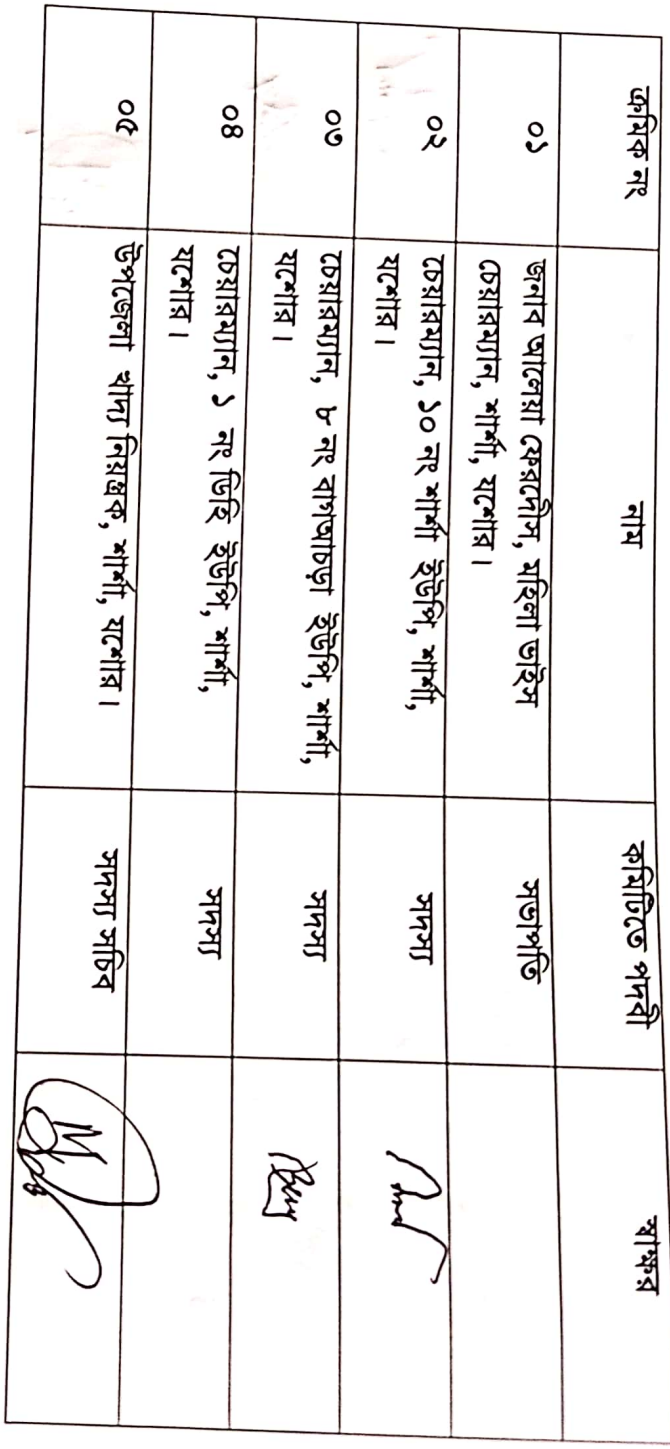 ক্রমিক নং নাম কমিটিতে পদবী স্বাক্ষর
০১ জনাব আলেয়া ফেরদৌস, মহিলা ভাইস সভাপতি
চেয়ারম্যান, শার্শা, যশোর।
০২ চেয়ারম্যান, ১০ নং শার্শা ইউপি, শার্শা, সদস্য
যশোর।
০৩ চেয়ারম্যান, ৮ নং বাগআচড়া ইউপি, শার্শা, সদস্য
যশোর।
০৪ চেয়ারম্যান, ১ নং ডিহি ইউপি, শার্শা, সদস্য
যশোর।
০৫ উপজেলা খাদ্য নিয়ন্ত্রক, শার্শা, যশোর। সদস্য সচিব